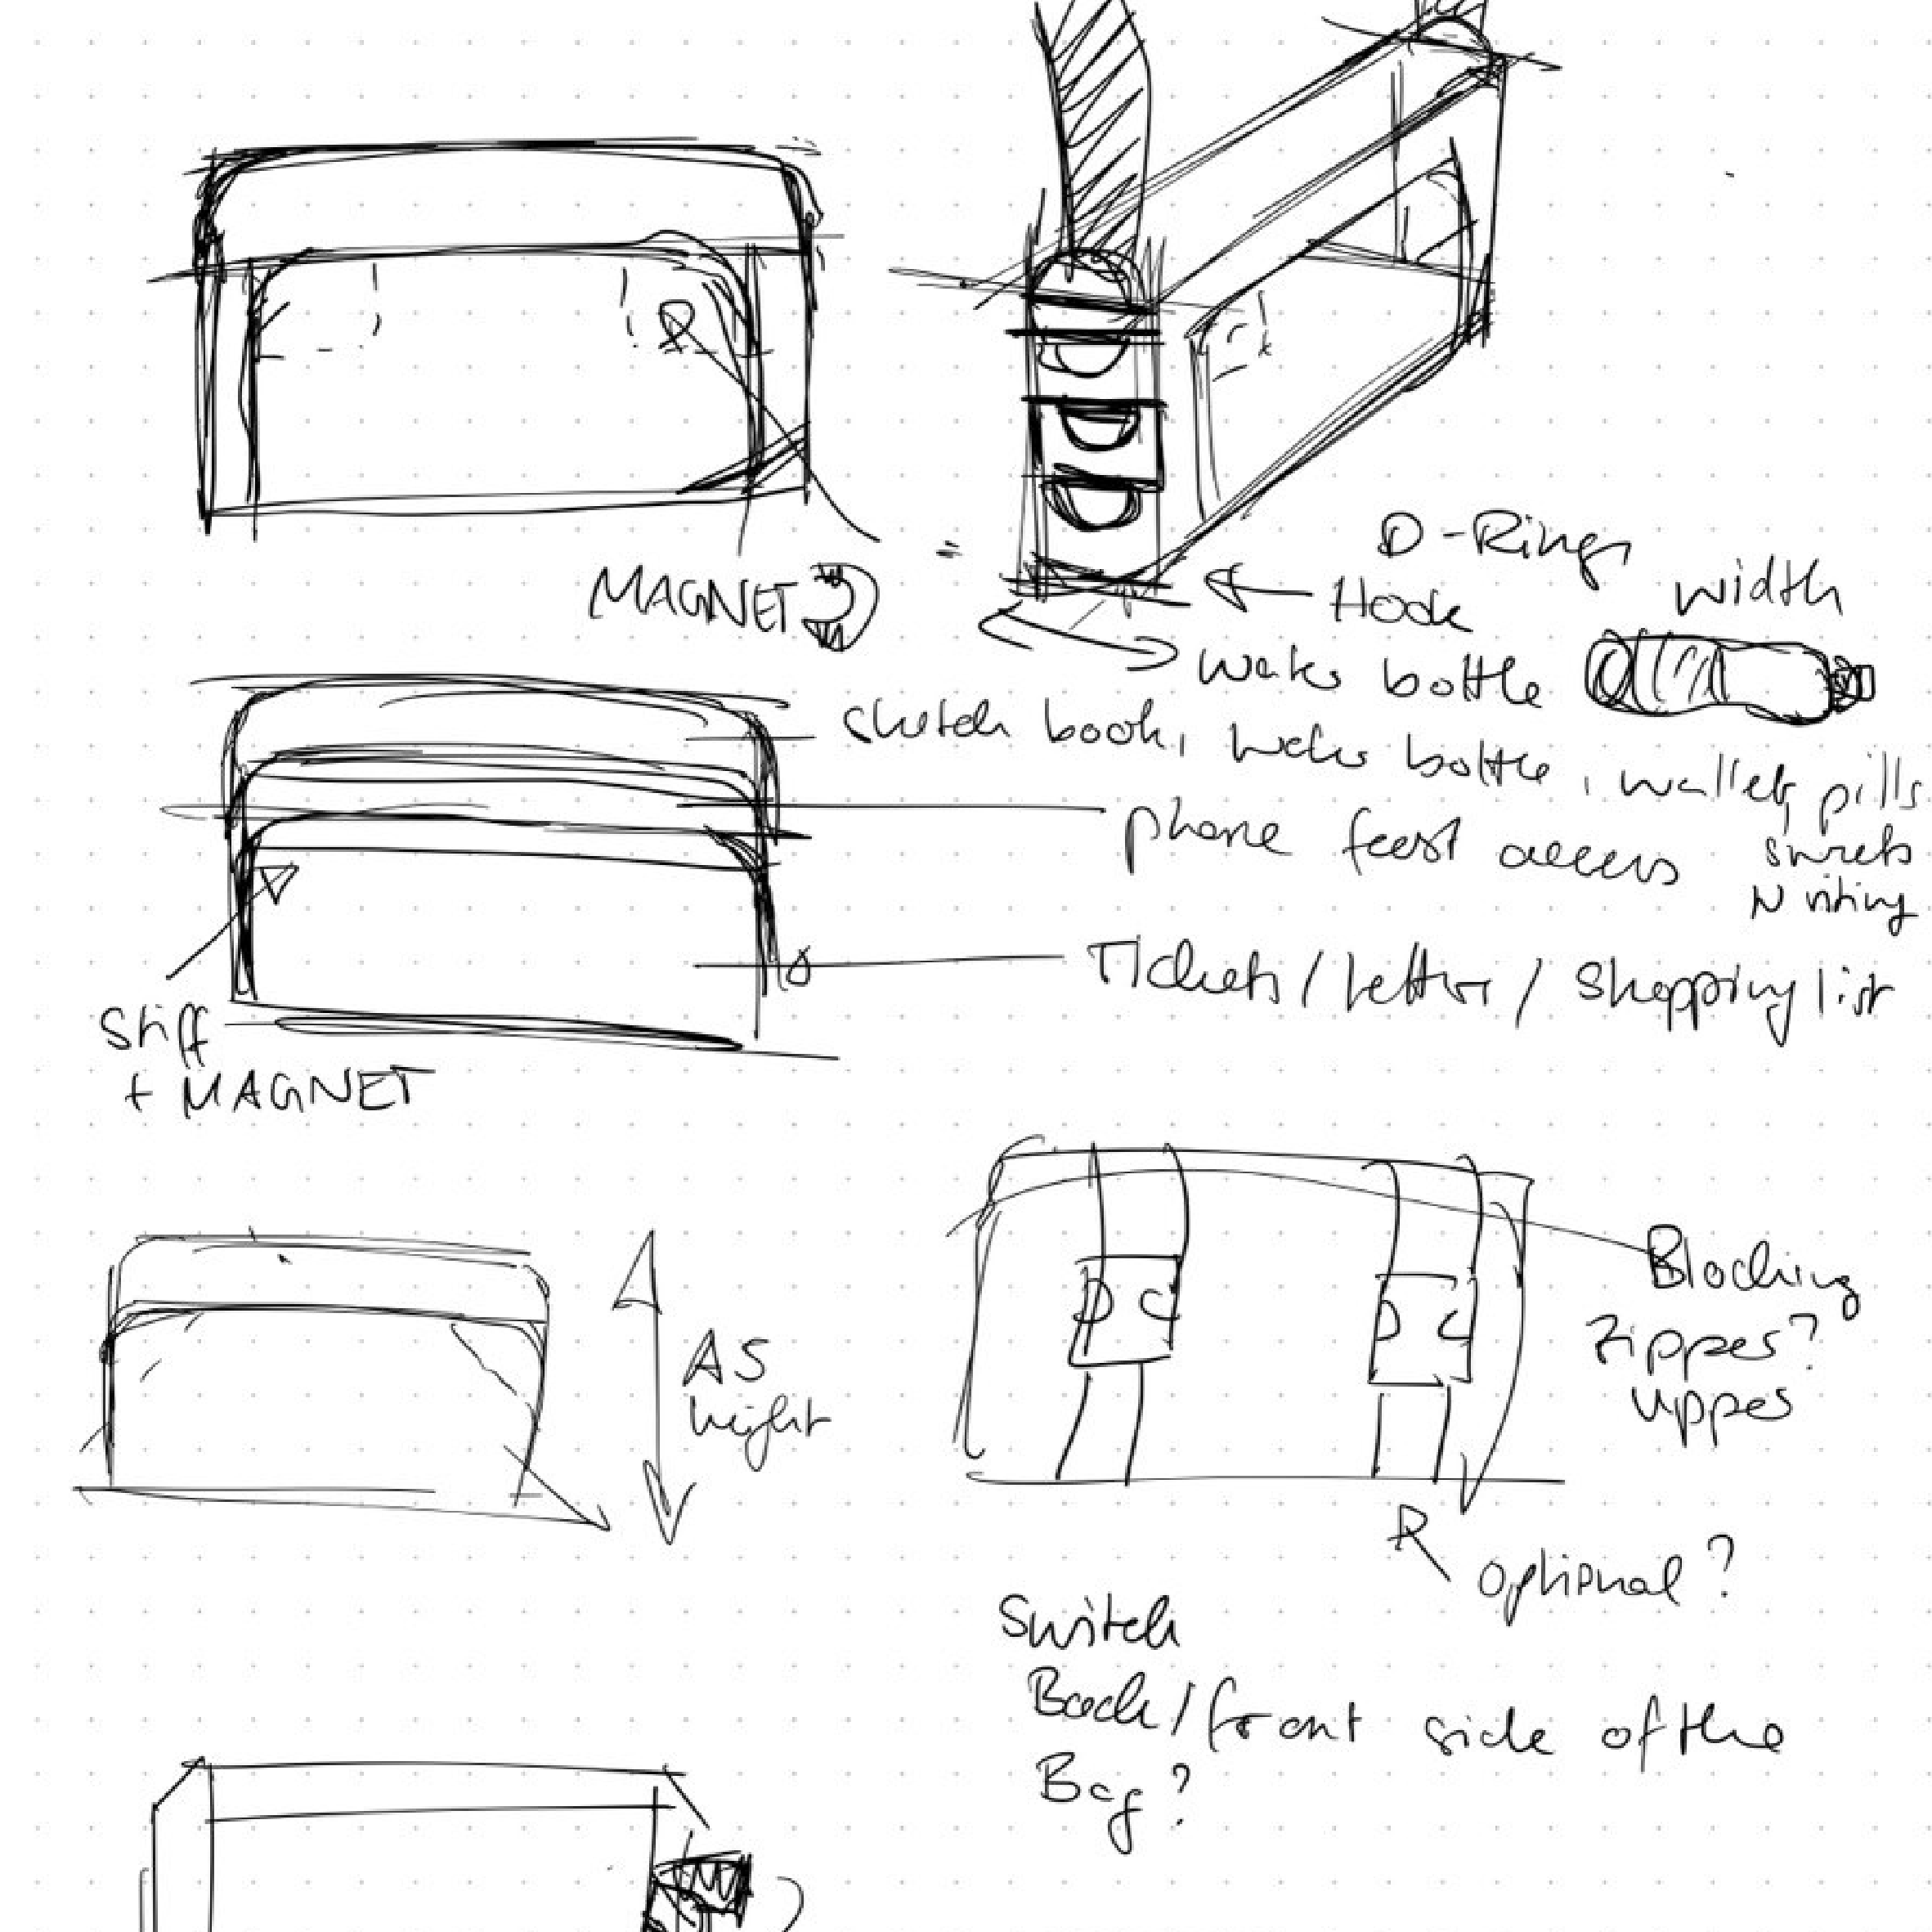 D-Rings
Hook
width
MAGNET
water bottle
sketch book, water bottle, wallet, pills
phone fast access
sweets
writing
Tickets / Letter / Shopping list
Stiff
+ MAGNET
Blocking
Zipper?
upper
A5
height
optional?
Switch
Back/front side of the
Bag?